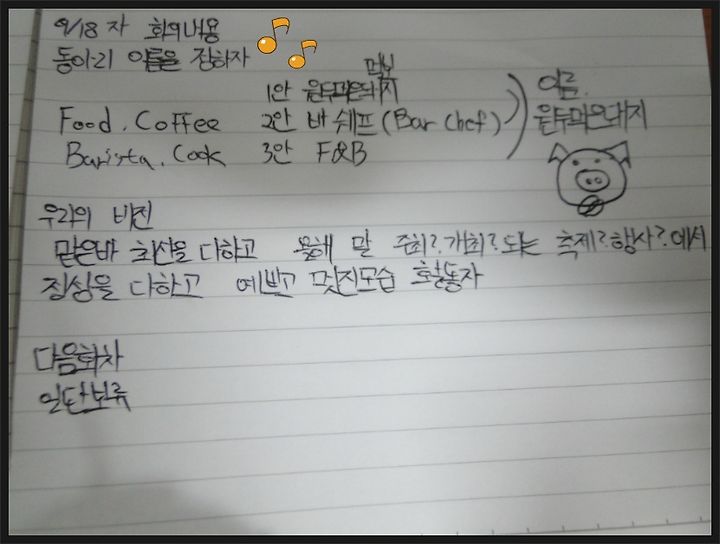 9/18 자 회의내용
동아리 이름을 정하자
먹보
1안 원두파우돼지
Food. Coffee 2안 바 쉐프 (Bar Chef)
Barista. Cook 3안 F&B
이름.
우리의 비전
맡은바 최선을 다하고 올해 말 주최?.개최? 되는 축제?.행사?.에서
진심을 다하고 예쁘고 멋진모습
다음회차
일단보류